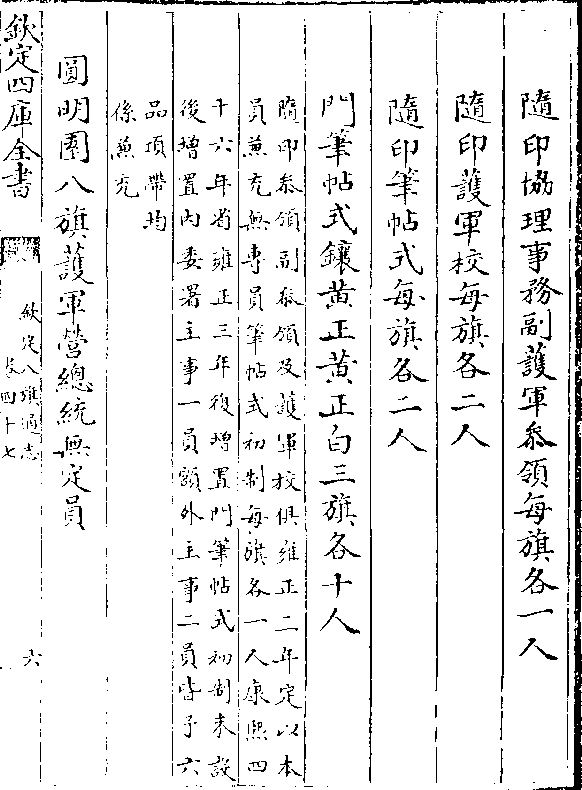 隨印協理事務副護軍叅領每旗各一人
隨印護軍校每旗各二人
隨印筆帖式每旗各二人
門筆帖式鑲黃正黃正白三旗各十人
隨印叅領副叅領及護軍校俱雍正二年定以本
員兼充無專員筆帖式初制每旗各一人康熙四
十六年省雍正三年復増置門筆帖式初制未設
後増置內委署主事一員額外主事二員皆予六
品項帶均
係兼充
圓明園八旗護軍營總統無定員
欽定四庫全書
欽定八旗通志
卷四十七
六